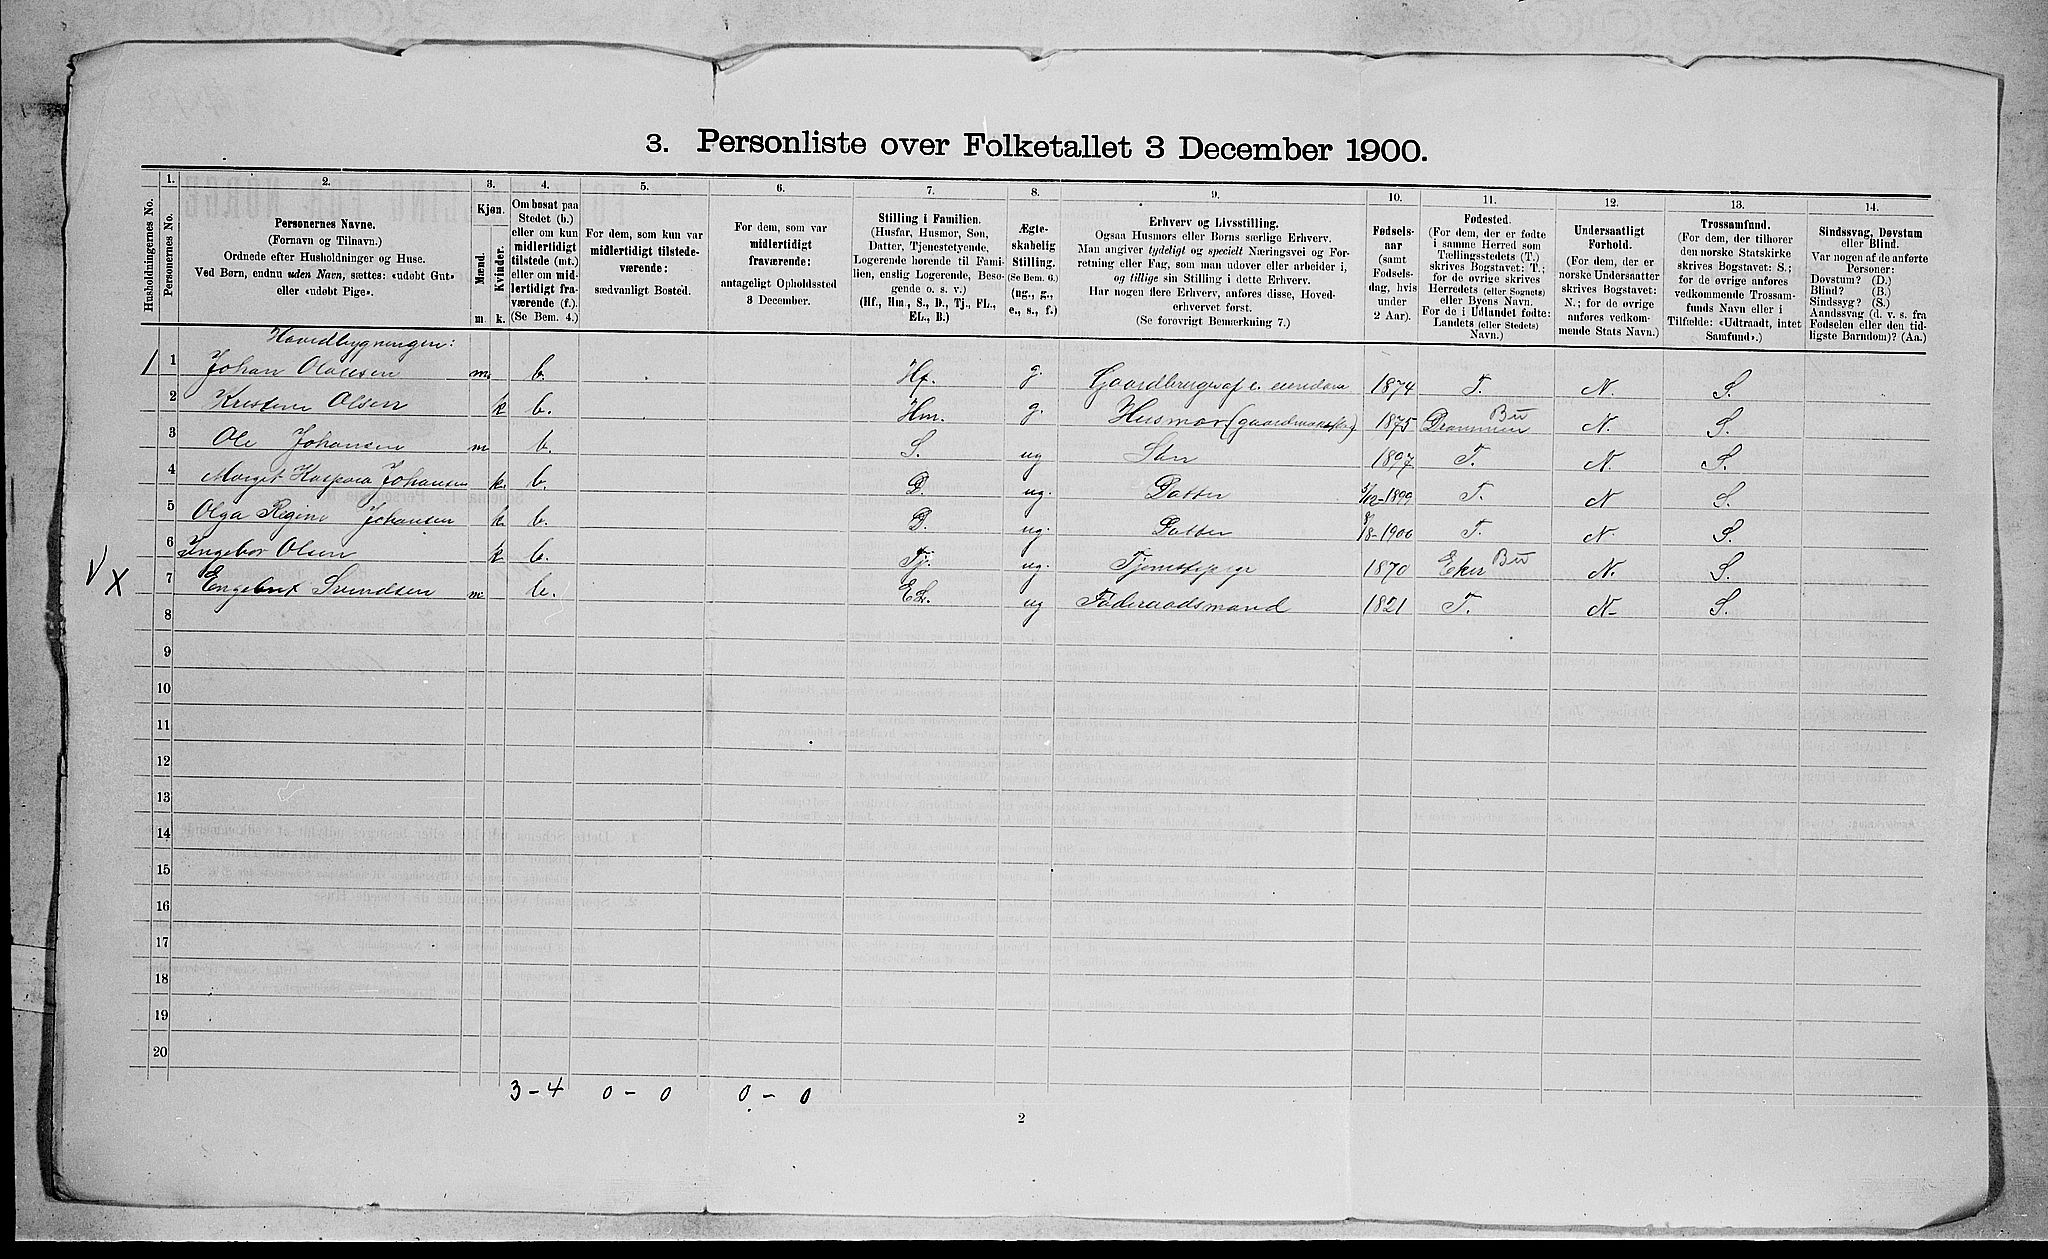 3. Personliste over Folketallet 3 December 1900.
1. 2. 3. 4. 5. 6. 7. 8. 9. 10. 11. 12. 13. 14.
Husholdningernes No.
Personernes No.
Personernes Navne.
(Fornavn og Tilnavn.)
Ordnede efter Husholdninger og Huse.
Ved Børn, endnu uden Navn, sættes: «udøbt Gut»
eller «udøbt Pige».
Kjøn.
Mænd.
Kvinder.
m. k.
Om bosat paa
Stedet (b.)
eller om kun
midlertidigt
tilstede (mt.)
eller om mid-
lertidigt fra-
værende (f.).
(Se Bem. 4.)
For dem, som kun var
midlertidigt tilstede-
værende:
sædvanligt Bosted.
For dem, som var
midlertidigt
fraværende:
antageligt Opholdssted
3 December.
Stilling i Familien.
(Husfar, Husmor, Søn,
Datter, Tjenestetyende,
Logerende hørende til Fami-
lien, enslig Logerende, Besø-
gende o. s. v.)
(Hf., Hm., S., D., Tj., FL.,
EL., B.)
Ægte-
skabelig
Stilling.
(Se Bem. 6.)
(ug., g.,
e., s., f.)
Erhverv og Livsstilling.
Ogsaa Husmors eller Børns særlige Erhverv.
Man angiver tydeligt og specielt Næringsvei og For-
retning eller Fag, som man udover eller arbeider i,
og tillige sin Stilling i dette Erhverv.
Har nogen flere Erhverv, anføres disse, Hoved-
erhvervet først.
(Se forøvrigt Bemærkning 7.)
Fødsels-
aar
(samt
Fødsels-
dag, hvis
under
2 Aar).
Fødested.
(For dem, der er fødte
i samme Herred som
Tællingsstedets (T.)
skrives Bogstavet: T.;
for de øvrige skrives
Herredets (eller Sognets)
eller Byens Navn.
For de i Udlandet fødte:
Landets (eller Stedets)
Navn.)
Undersaatligt
Forhold.
(For dem, der er
norske Undersaatter
skrives Bogstavet:
N.; for de øvrige
anføres vedkom-
mende Stats Navn.)
Trossamfund.
(For dem, der tilhører
den norske Statskirke
skrives Bogstavet: S.;
for de øvrige anføres
vedkommende Trossam-
funds Navn eller i
Tilfælde: «Udtraadt, intet
Samfund».)
Sindssvag, Døvstum
eller Blind.
Var nogen af de anførte
Personer:
Døvstum? (D.)
Blind? (B.)
Sindssyg? (S.)
Aandssvag (d. v. s. fra
Fødselen eller den tid-
ligste Barndom)? (Aa.)
Hovedbygningen:
1 1 Johan Olausen m. b. Hf. g. Gaardbruger af e. eiendom 1874 T. N. S.
2 Kristine Olsen k b. Hm. g. Husmor 1875 Drammen Bu N. S.
3 Ole Johansen m b. S. ug Søn 1897 T. N. S.
4 Marget Kaspara Johansen k. b. D. ug. Datter 5/12-1899 T. N S.
5 Olga Regine Johansen k. b. D. ug. Datter 8-1900 T. N. S.
V X
6 Ingebor Olsen k b. Tj. ug. Tjenestepige 1870 Eker Bu N. S.
7 Engebret Svendsen m b. EL. ug Føderaadsmand 1821 T. N- S.
8
9
10
11
12
13
14
15
16
17
18
19
20
3 - 4 0 - 0 0 - 0
2